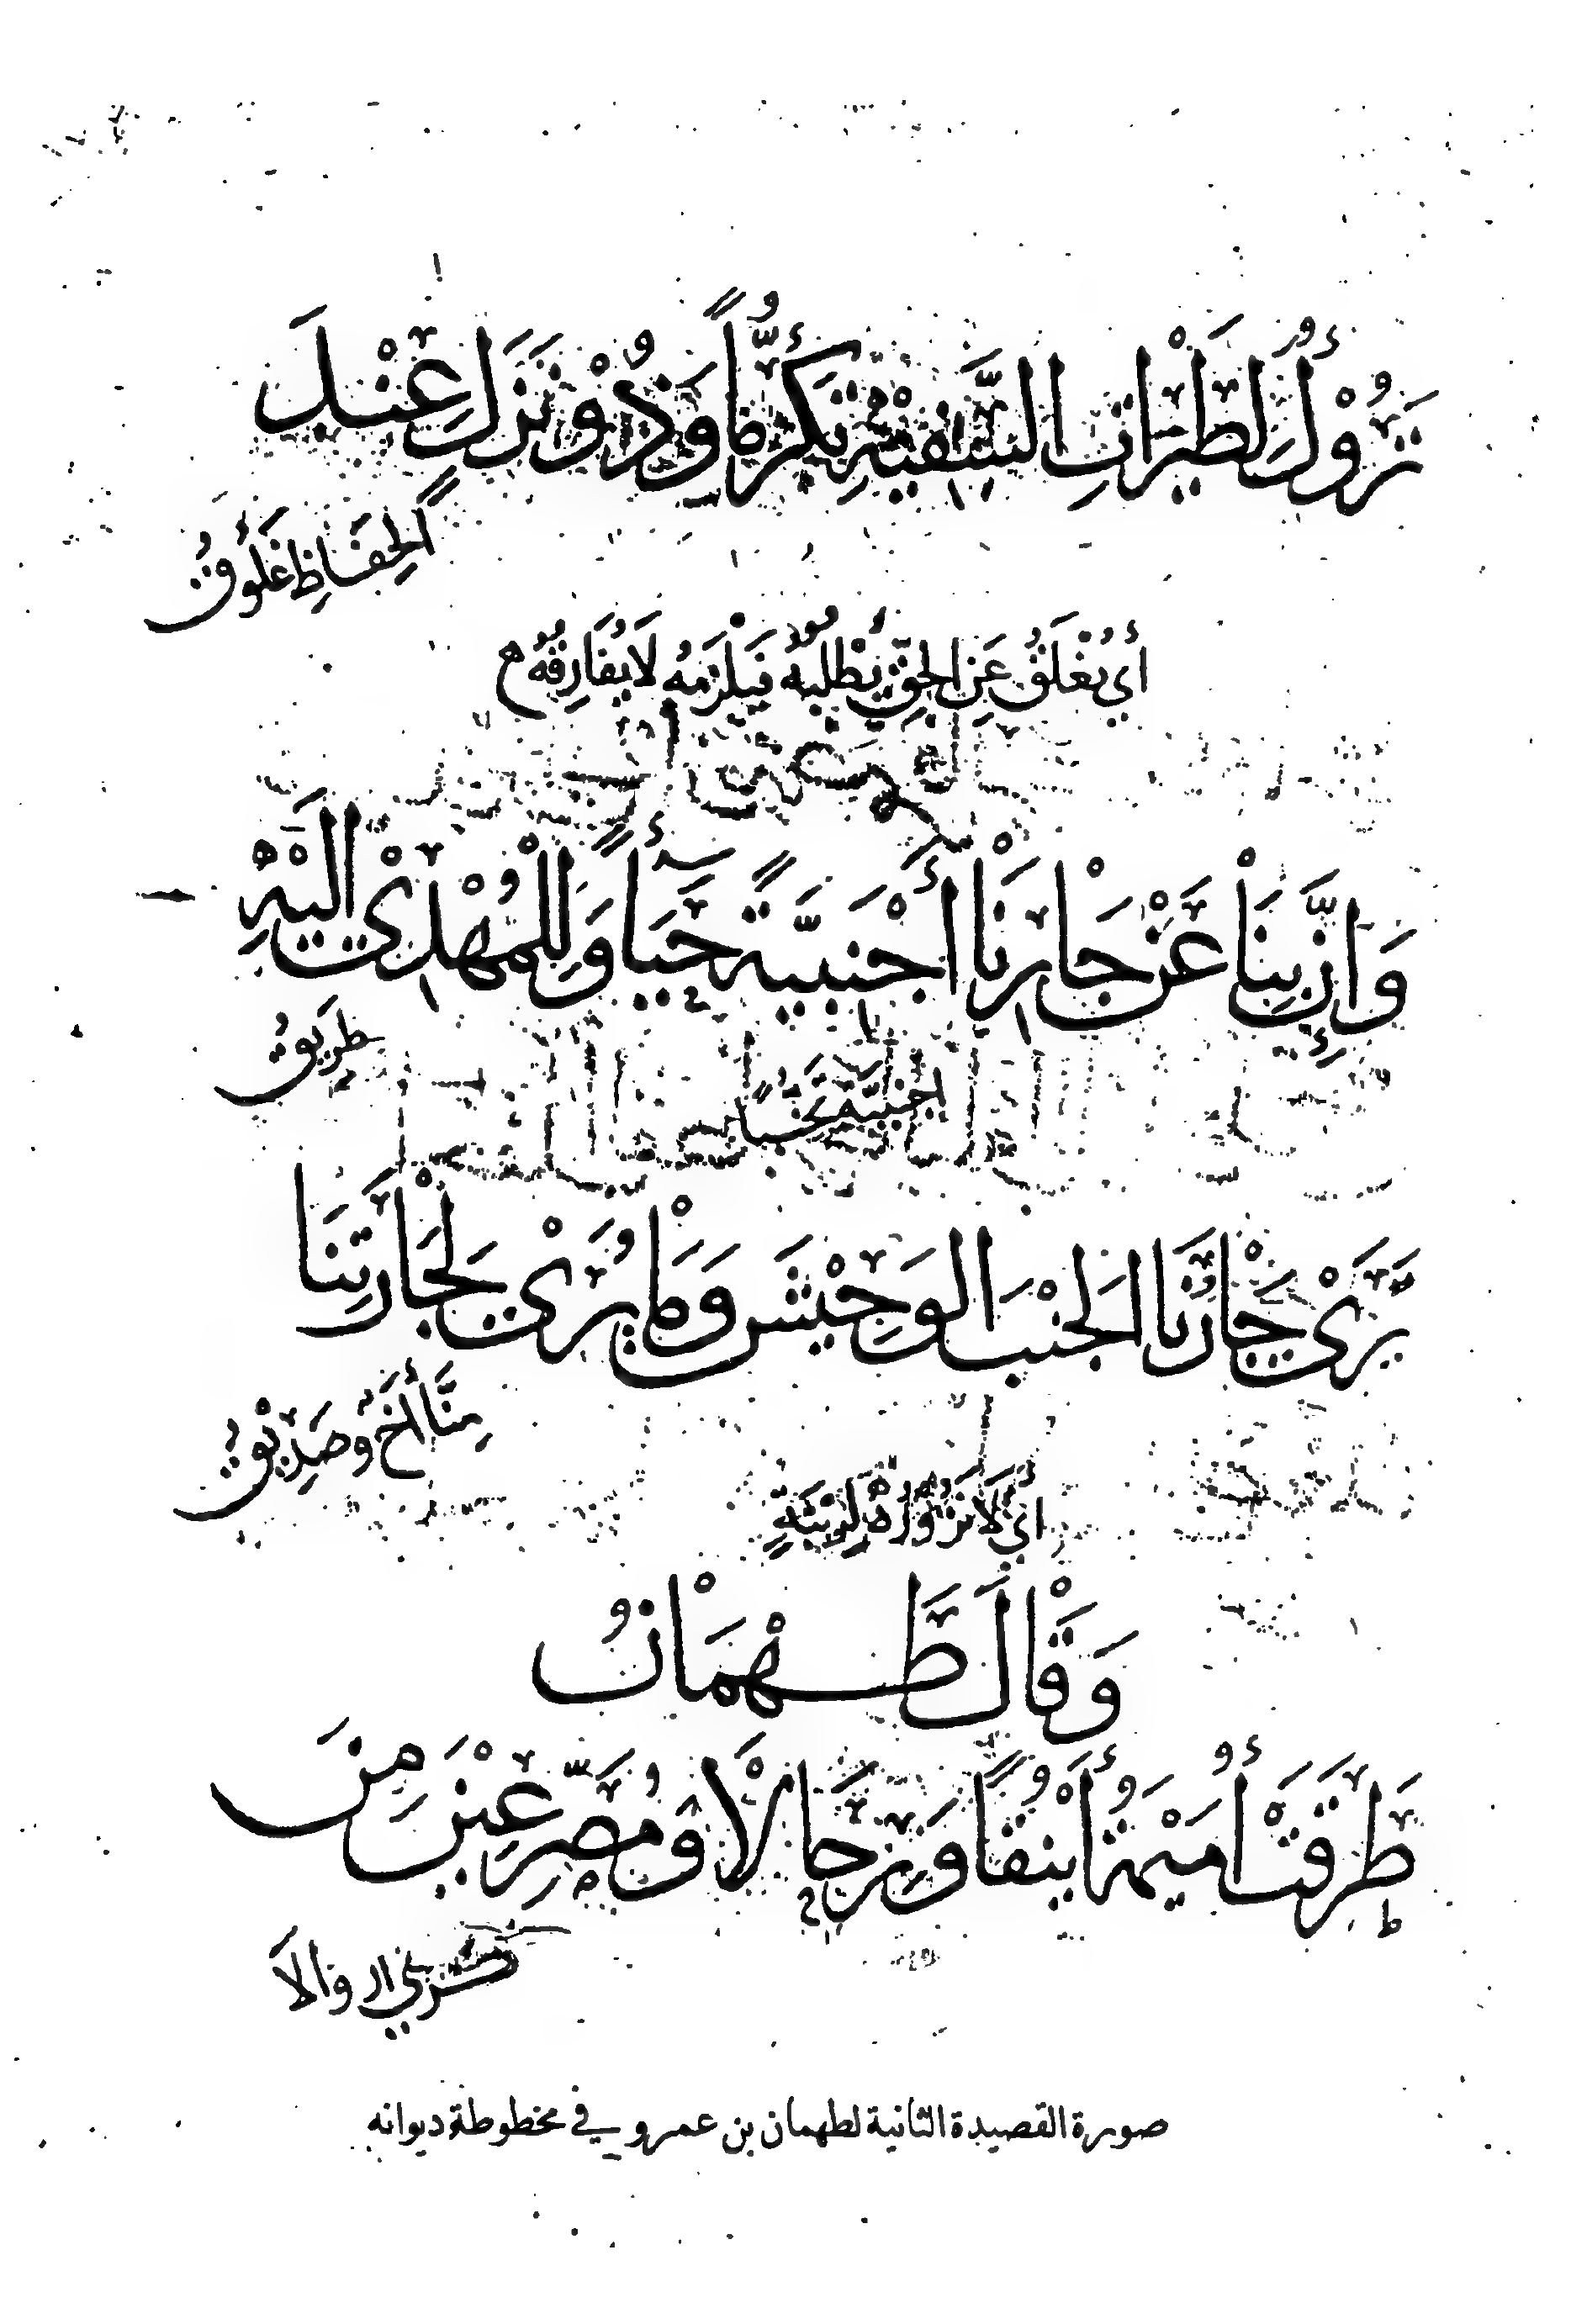 نَزُوْلٌ لَطَيْرَاتِ السَّفِيْهِ تَكَرُّمًا وَذُوْ نَزَلٍ عِنْدَ
الحِفَاظِ غَلُوقُ
أي يُغْلَقُ عَنِ الحَقِّ يَطْلُبُهُ فَيَلْزَمُهُ لَا يُفَارِقُهُ
وَإِنَّ بِنَا عَنْ جَارِنَا أَجْنَبِيَّةً حَيَاءً وَلِلْمُهْدَى إِلَيْهِ
طَرِيقُ
اجنبيّة تجنبًا
يَرَىْ جَارُنَا الجَنْبَ الوَحِيْشَ وَمَا يُرَىْ لِجَارَتِنَا
مِنَّا أَخٌ وَصَدِيْقُ
أَيْ لَا نَزُوْرُهَا لِرِيْبَةٍ
وَقَالَ طَهْمَانُ
طَرَقَتْ أُمَيْمَةُ أَيْنُقًا وَرِحَالًا وَمُصَرَّعِيْنَ مِنَ
الكرى أزوالا
صورة القصيدة الثانية لطهمان بن عمرو في مخطوطة ديوانه